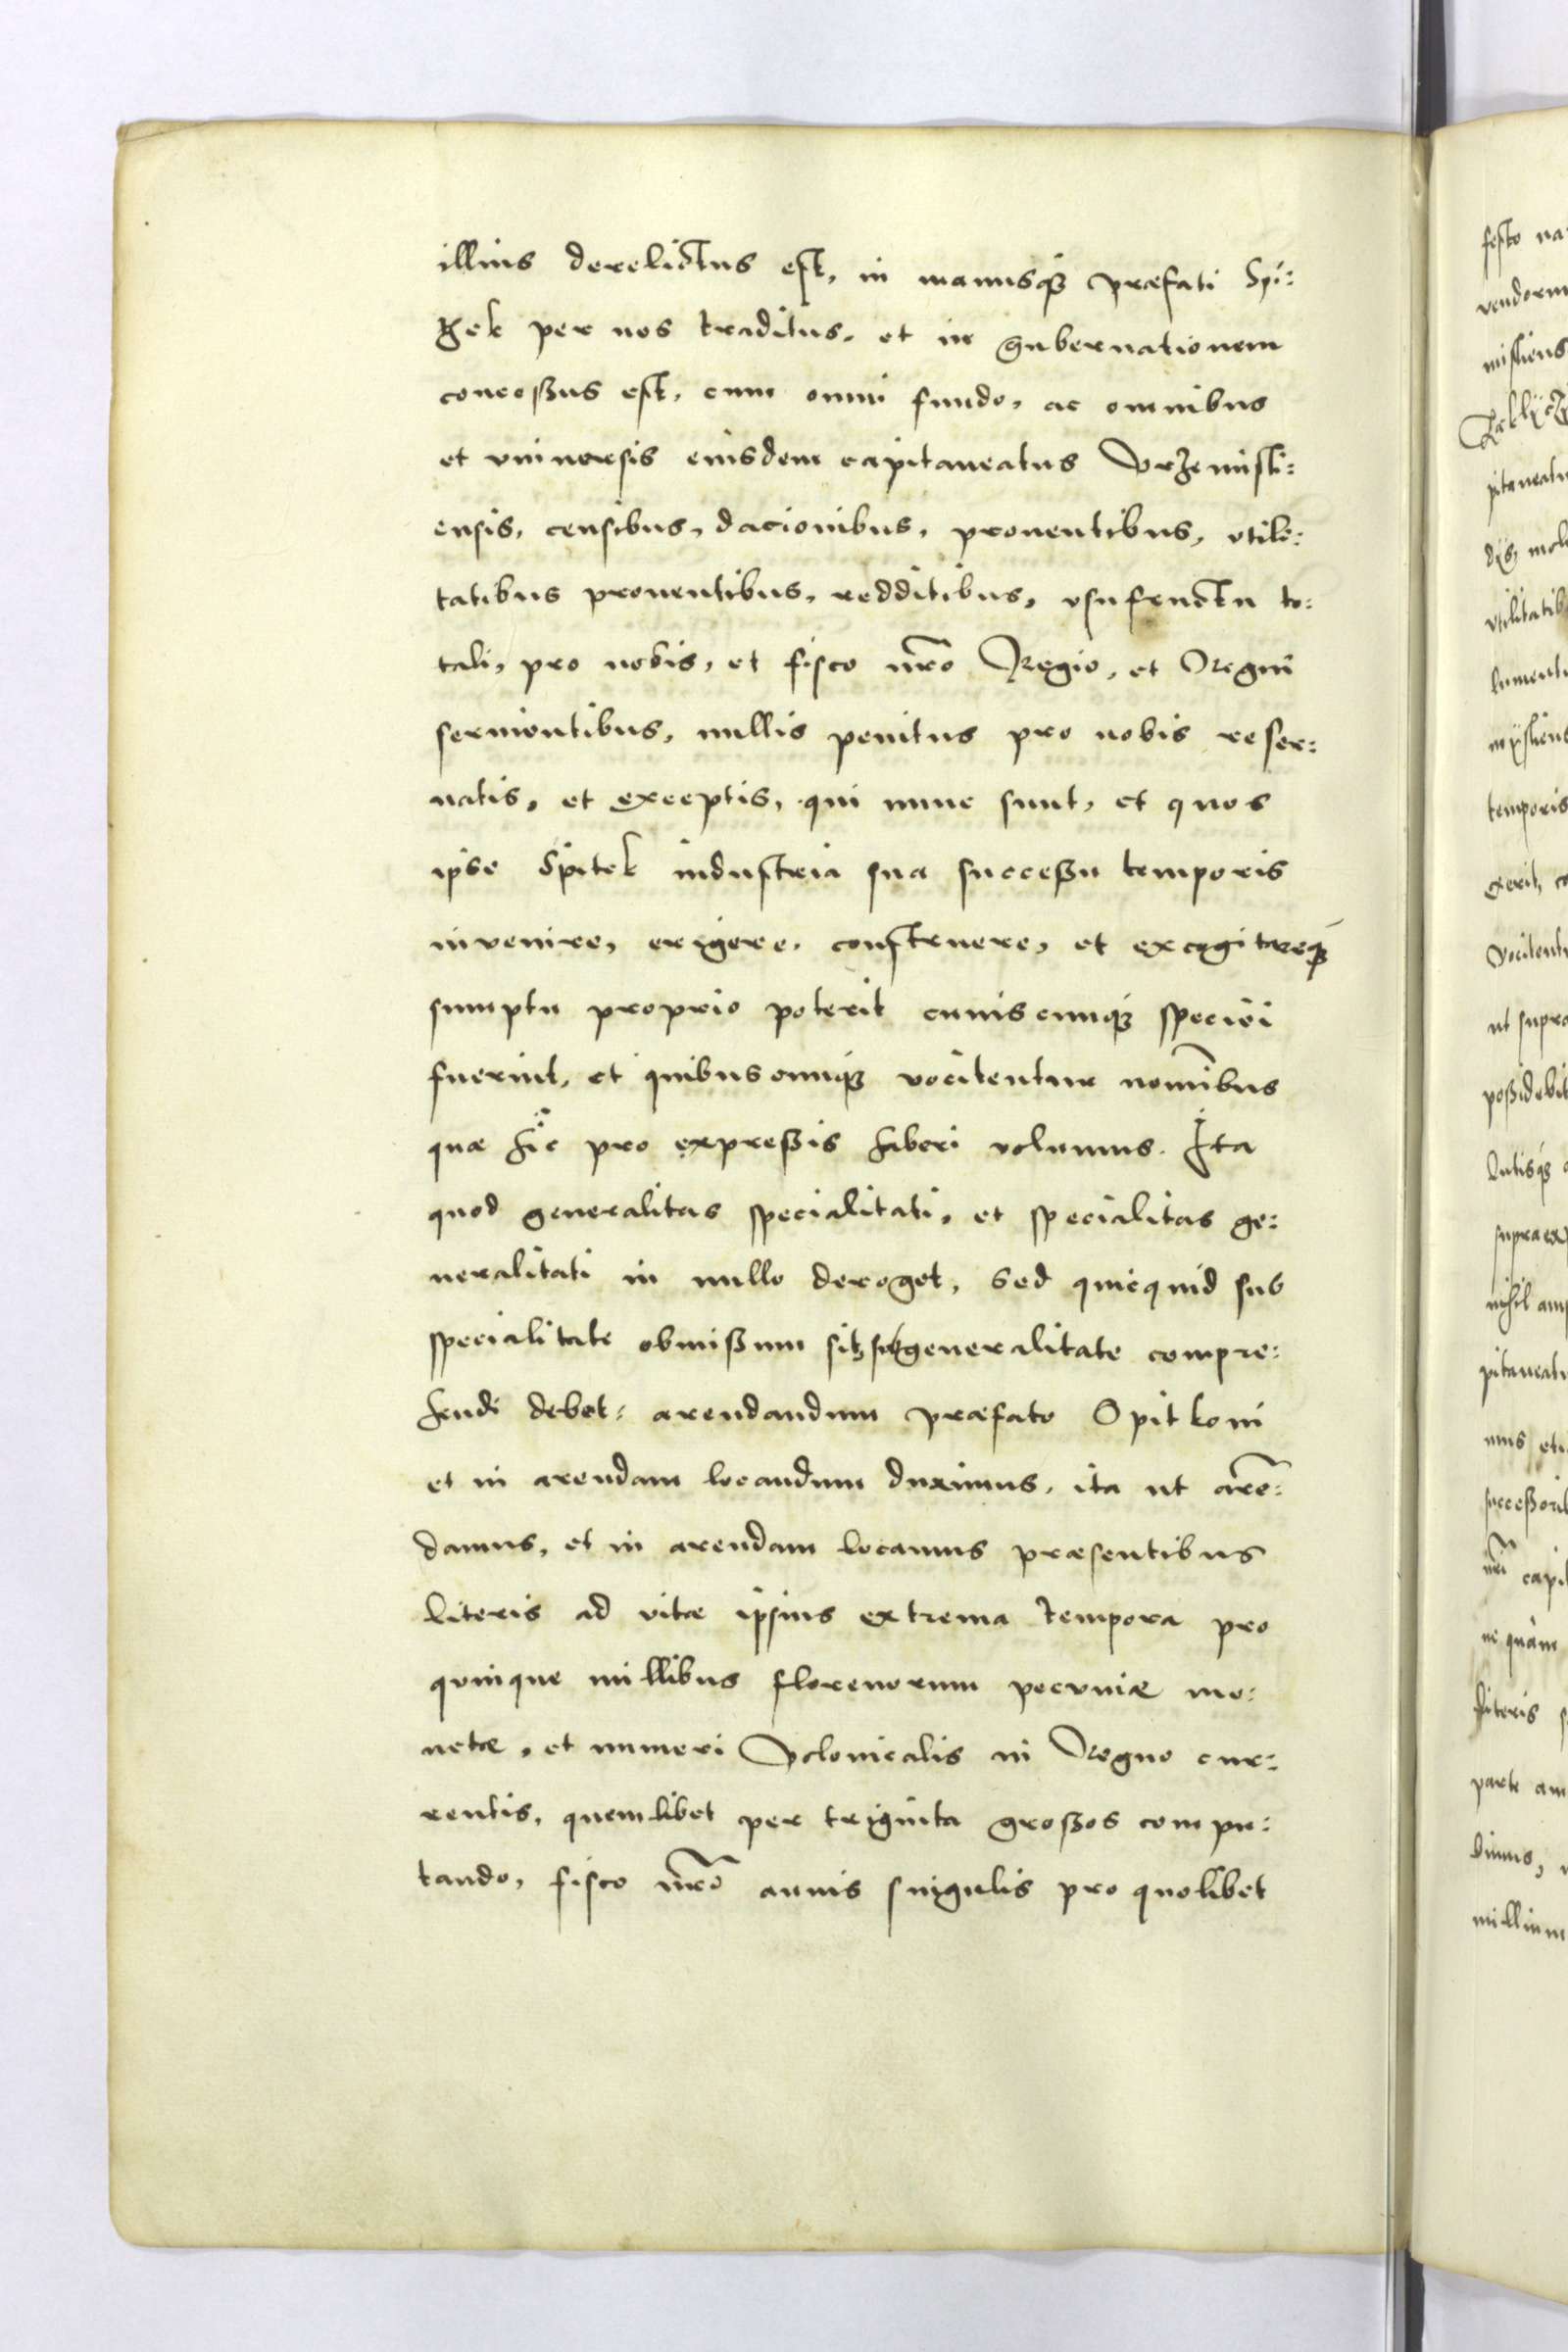 illius derelictus est, in manusq́; præfati Spi:
tek per nos traditus, et in gubernationem
concessus est, cum omni fundo, ac omnibus
et uniuersis eiusdem capitaneatus Przemisli:
ensis, censibus, dacionibus, prouentibus, vtili:
tatibus prouentibus, redditibus, vsufructu to:
tali, pro nobis, et fisco nr̃o Regio, et Regni
seruientibus, nullis penitus pro nobis reser:
uatis, et exceptis, qui nunc sunt, et quos
ipse Spitek industria sua successu temporis
invenire, erigere, construere, et excogitareq́;
sumptu proprio poterit cuiuscunq́; speciei
fuerint, et quibuscunq́; vocitentur nomĩbus
quæ hic pro expressis haberi volumus. Ita
quod generalitas specialitati, et specialitas ge:
neralitati in nullo deroget, sed quicquid sub
specialitate obmissum sit, sub generalitate compre:
hendi debet: arendandum præfato Spitkoni
et in arendam locandum duximus, ita ut arẽ:
damus, et in arendam locamus præsentibus
literis ad vitæ ipsius extrema tempora pro
quinque millibus florenorum pecuniæ mo:
netæ, et numeri Polonicalis in Regno cur:
rentis, quemlibet per triginta grossos compu:
tando, fisco nr̃o annis singulis pro quolibet
festo na
vendorum
misliens
pitaneatu
utilitatib
temporis
gerit, co
vocitent
ut supra
possidebit
supra ex
nihil am
pitaneatu
successorib
nr̃i capit
ne quàm
literis
parte am
bimus,
millium